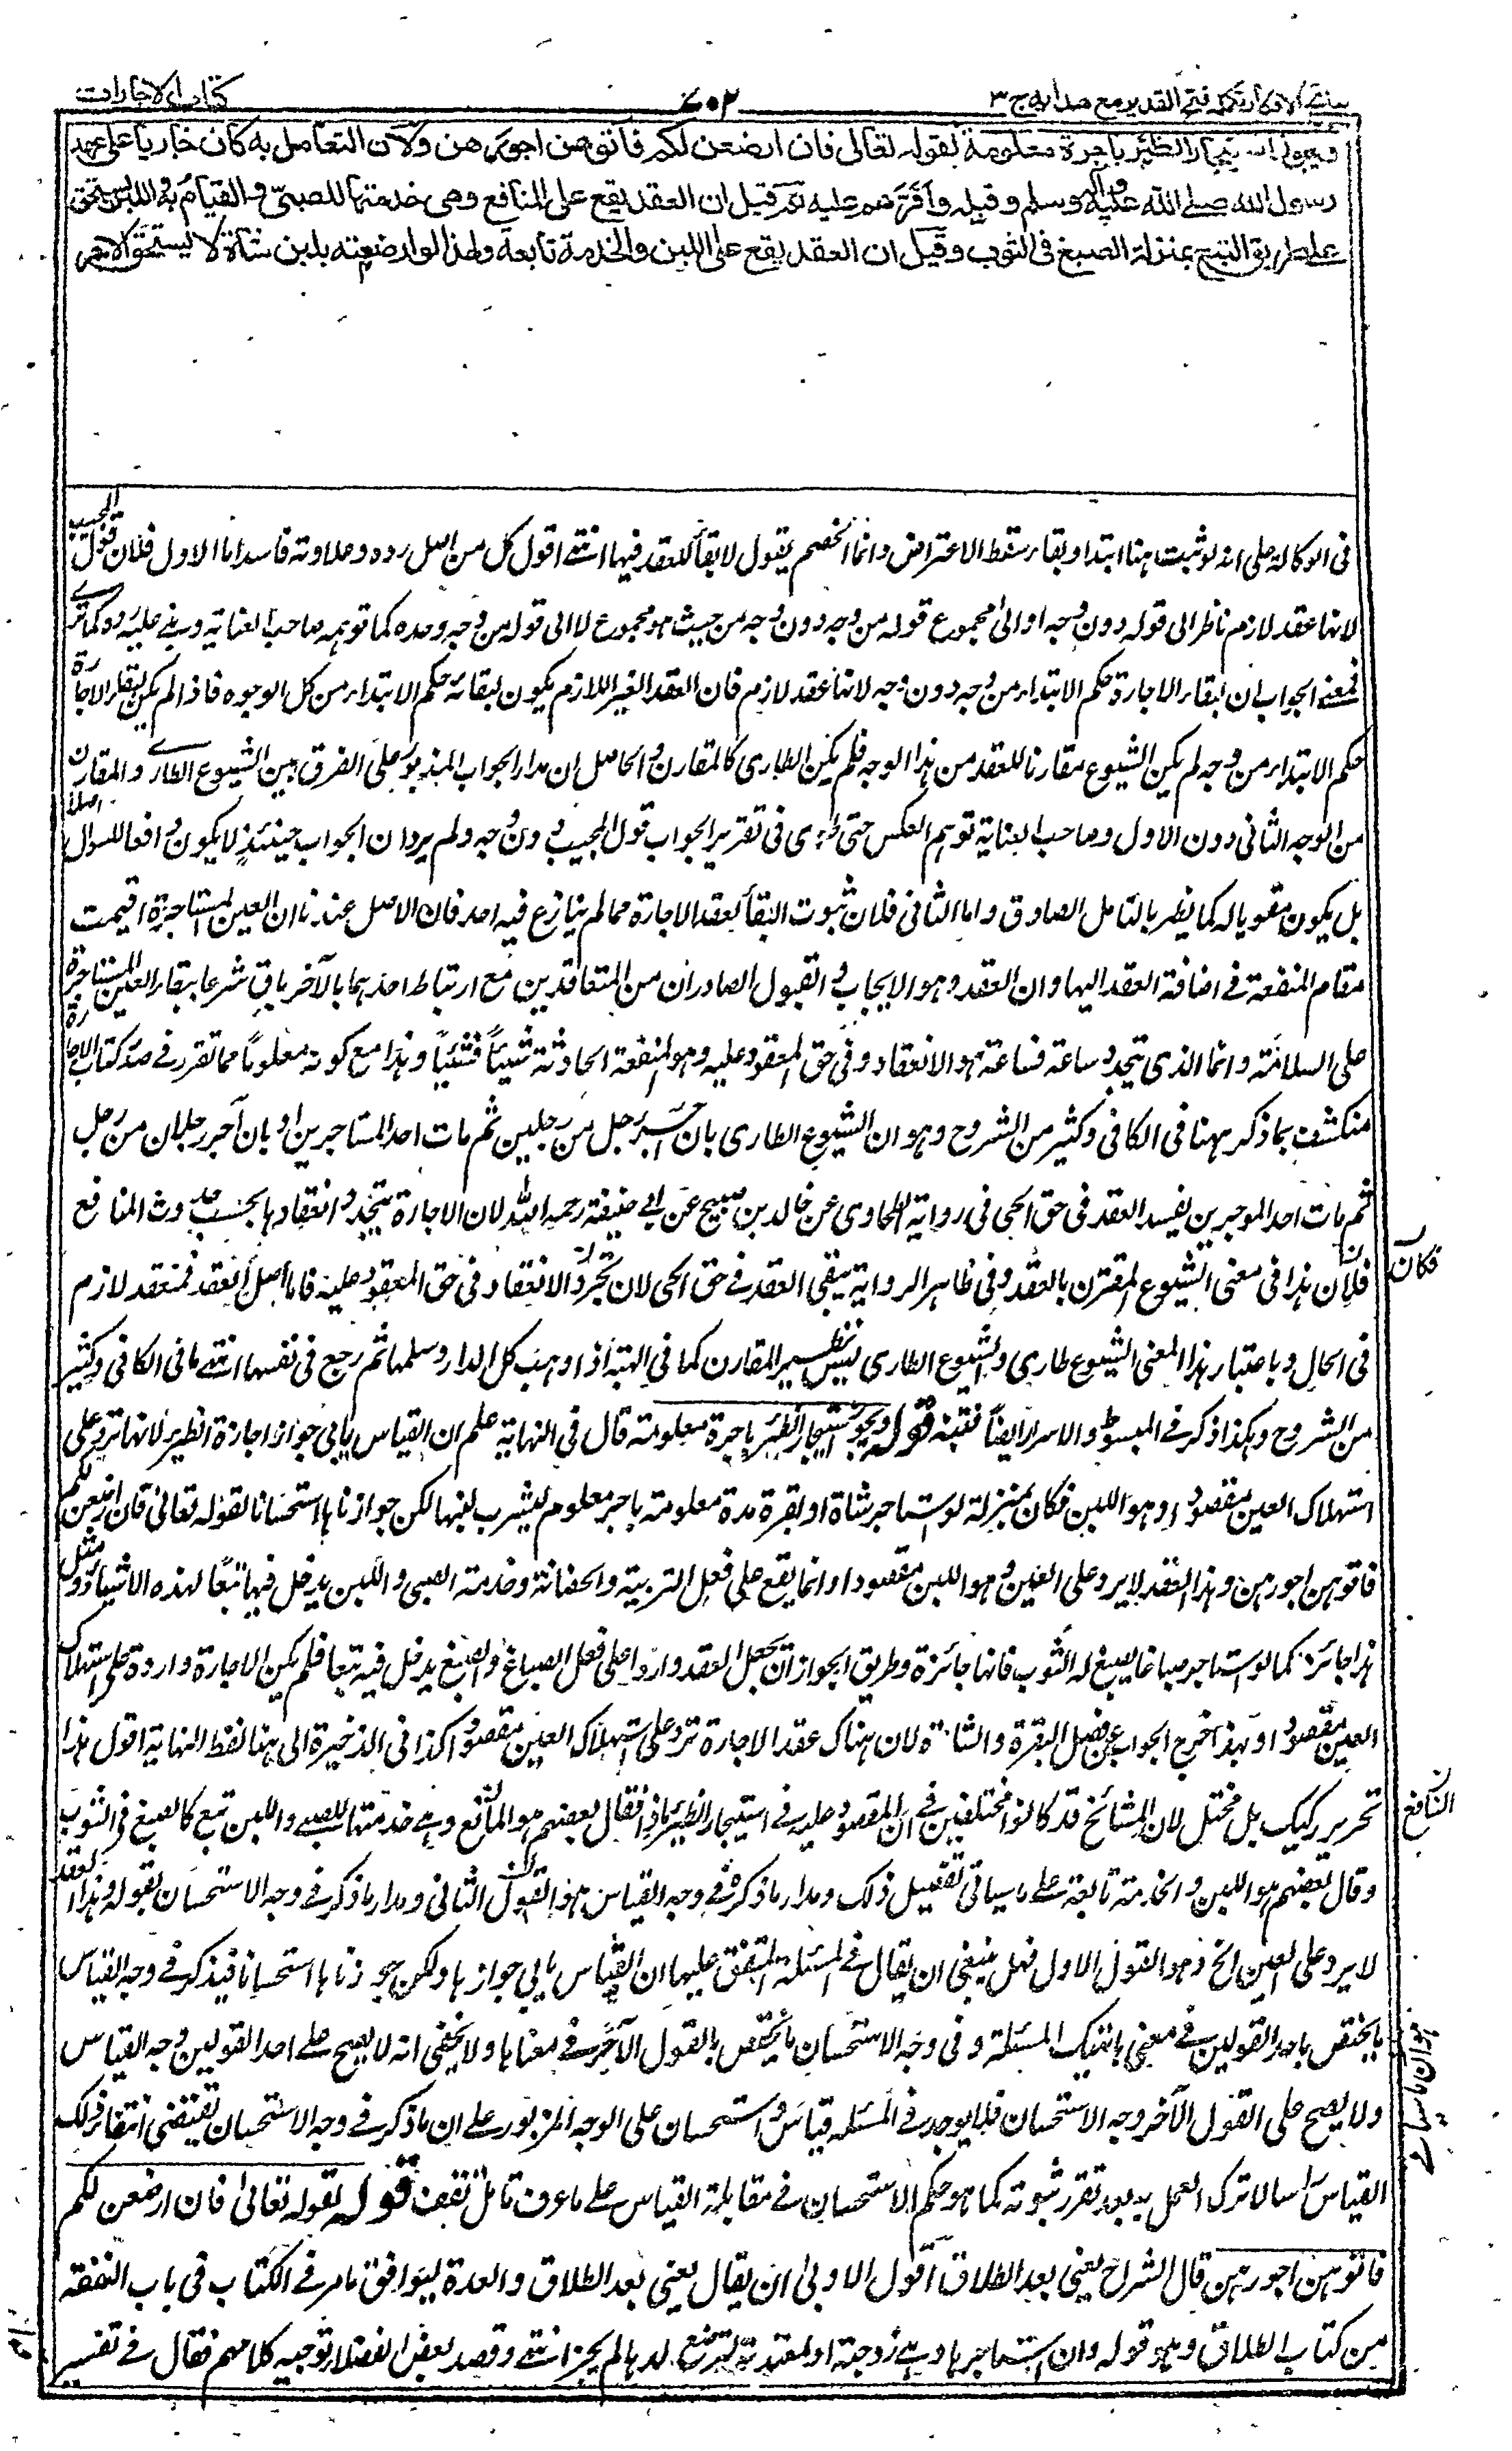 نتائج الافكار تكمله فتح القدير مع هدايه ج ٣
٧٠٢
كتاب الاجارات
ويجوز استيجار الظئر باجرة معلومة لقوله تعالى فان ارضعن لكم فاتوهن اجورهن ولان التعامل به كان جاريا على عهد
رسول الله صلى الله عليه وآله وسلم وقبله واقرهم عليه ثم قيل ان العقد يقع على المنافع وهى خدمتها للصبى والقيام به واللبن يستحق
على طريق التبع بمنزلة الصبغ فى الثوب وقيل ان العقد يقع على اللبن والخدمة تابعة ولهذا لو ارضعته بلبن شاة لا يستحق الاجر
فى الوكالة على انه لو ثبت هنا ابتداء وبقاء سقط الاعتراض وانما الخصم يقول لا بقاء للعقد فيها انتهى اقول كل من اصل رده وعلاوته فاسد اما الاول فلان قول المجيب
لانها عقد لازم ناظر الى قوله دون وجه او الى مجموع قوله من وجه دون وجه من حيث هو مجموع لا الى قوله من وجه وحده كما توهمه صاحب العناية وبنى عليه رده كما ترى
فمعنى الجواب ان لبقاء الاجارة حكم الابتداء من وجه دون وجه لانها عقد لازم فان العقد الغير اللازم يكون لبقائه حكم الابتداء من كل الوجوه فاذا لم يكن لبقاء الاجارة
حكم الابتداء من وجه لم يكن الشيوع مقارنا للعقد من هذا الوجه فلم يكن الطارى كالمقارن والحاصل ان مدار الجواب المذبور على الفرق بين الشيوع الطارى والمقارن
من الوجه الثانى دون الاول وصاحب العناية توهم العكس حتى فى تقرير الجواب قول المجيب دون وجه ولم يرد ان الجواب حينئذ لا يكون دافعا للسوال اصلا
بل يكون مقويا له كما يظهر بالتامل الصادق واما الثانى فلان ثبوت البقاء لعقد الاجارة مما لم ينازع فيه احد فان الاصل عندنا ان العين المستاجرة اقيمت
مقام المنفعة فى اضافة العقد اليها وان العقد وهو الايجاب والقبول الصادران من المتعاقدين مع ارتباط احدهما بالآخر باق شرعا ببقاء العين المستاجرة
على السلامة وانما الذى يتجدد ساعة فساعة هو الانعقاد فى حق المعقود عليه وهو المنفعة الحادثة شيئا فشيئا وهذا مع كونه معلوما مما تقرر فى صدر كتاب الاجارة
منكشف بما ذكر ههنا فى الكافى وكثير من الشروح وهو ان الشيوع الطارى بان آجر رجل من رجلين ثم مات احد المستاجرين او بان آجر رجلان من رجل
ثم مات احد الموجرين يفسد العقد فى حق الحى فى رواية الطحاوى عن خالد بن صبيح عن ابى حنيفة رحمه الله لان الاجارة يتجدد انعقادها بحسب حدوث المنافع
فكان هذا فى معنى الشيوع المقترن بالعقد وفى ظاهر الرواية يبقى العقد فى حق الحى لان تجدد الانعقاد فى حق المعقود عليه فاما اصل العقد فمنعقد لازم
فى الحال وباعتبار هذا المعنى الشيوع طارى والشيوع الطارى ليس نظير المقارن كما فى الهبة اذا وهب كل الدار وسلمها ثم رجع فى نصفها انتهى ما فى الكافى وكثير
من الشروح وهكذا ذكر فى المبسوط والاسرار ايضا فتنبه قوله ويجوز استيجار الظئر باجرة معلومة قال فى النهاية اعلم ان القياس يابى جواز اجارة الظئر لانها ترد على
استهلاك العين مقصودا وهو اللبن فكان بمنزلة لو استاجر شاة او بقرة مدة معلومة باجر معلوم ليشرب لبنها لكن جوزناها استحسانا لقوله تعالى فان ارضعن لكم
فاتوهن اجورهن وهذا العقد لا يرد على العين وهو اللبن مقصودا وانما يقع على فعل التربية والحضانة وخدمة الصبى واللبن يدخل فيها تبعا لهذه الاشياء ومثل
هذا جائز كما لو استاجر صباغا ليصبغ له الثوب فانها جائزة وطريق الجواز ان يجعل العقد واردا على فعل الصباغ والصبغ يدخل فيه تبعا فلم يكن الاجارة واردة على استهلاك
العين مقصودا وبهذا خرج الجواب عن فصل البقرة والشاة لان هناك عقد الاجارة ترد على استهلاك العين مقصودا كذا فى الذخيرة الى هنا لفظ النهاية اقول هذا
تحرير ركيك بل مختل لان المشائخ قد كانوا مختلفين فى ان المقصود عليه فى استيجار الظئر ماذا فقال بعضهم هو المنافع وهى خدمتها للصبى واللبن تبع كالصبغ فى الثوب
وقال بعضهم هو اللبن والخدمة تابعة على ما سياتى تفصيل ذلك ومدار ما ذكره فى وجه القياس هو القول الثانى ومدار ما ذكر فى وجه الاستحسان بقوله وهذا العقد
لا يرد على العين الخ وهو القول الاول فهل ينبغى ان يقال فى المسئلة المتفق عليها ان القياس يابى جوازها ولكن جوزناها استحسانا فيذكر فى وجه القياس
ما يختص باحد القولين فى معنى هاتيك المسئلة وفى وجه الاستحسان ما يختص بالقول الآخر فى معناها ولا يخفى انه لا يصح على احد القولين وجه القياس
ولا يصح على القول الآخر وجه الاستحسان فلا يوجد فى المسئلة قياس واستحسان على الوجه المزبور على ان ما ذكر فى وجه الاستحسان يقتضى انتفاء ذلك
القياس راسا لا ترك العمل به بعد تقرر ثبوته كما هو حكم الاستحسان فى مقابلة القياس على ما عرف تامل تقف قوله لقوله تعالى فان ارضعن لكم
فاتوهن اجورهن قال الشراح يعنى بعد الطلاق اقول الاولى ان يقال يعنى بعد الطلاق والعدة ليوافق ما مر فى الكتاب فى باب النفقة
من كتاب الطلاق وهو قوله وان استاجرها وهى زوجته او معتدته لترضع ولدها لم يجز انتهى وقصد بعض الفضلاء توجيه كلامهم فقال فى تفسير
فكان
المنافع